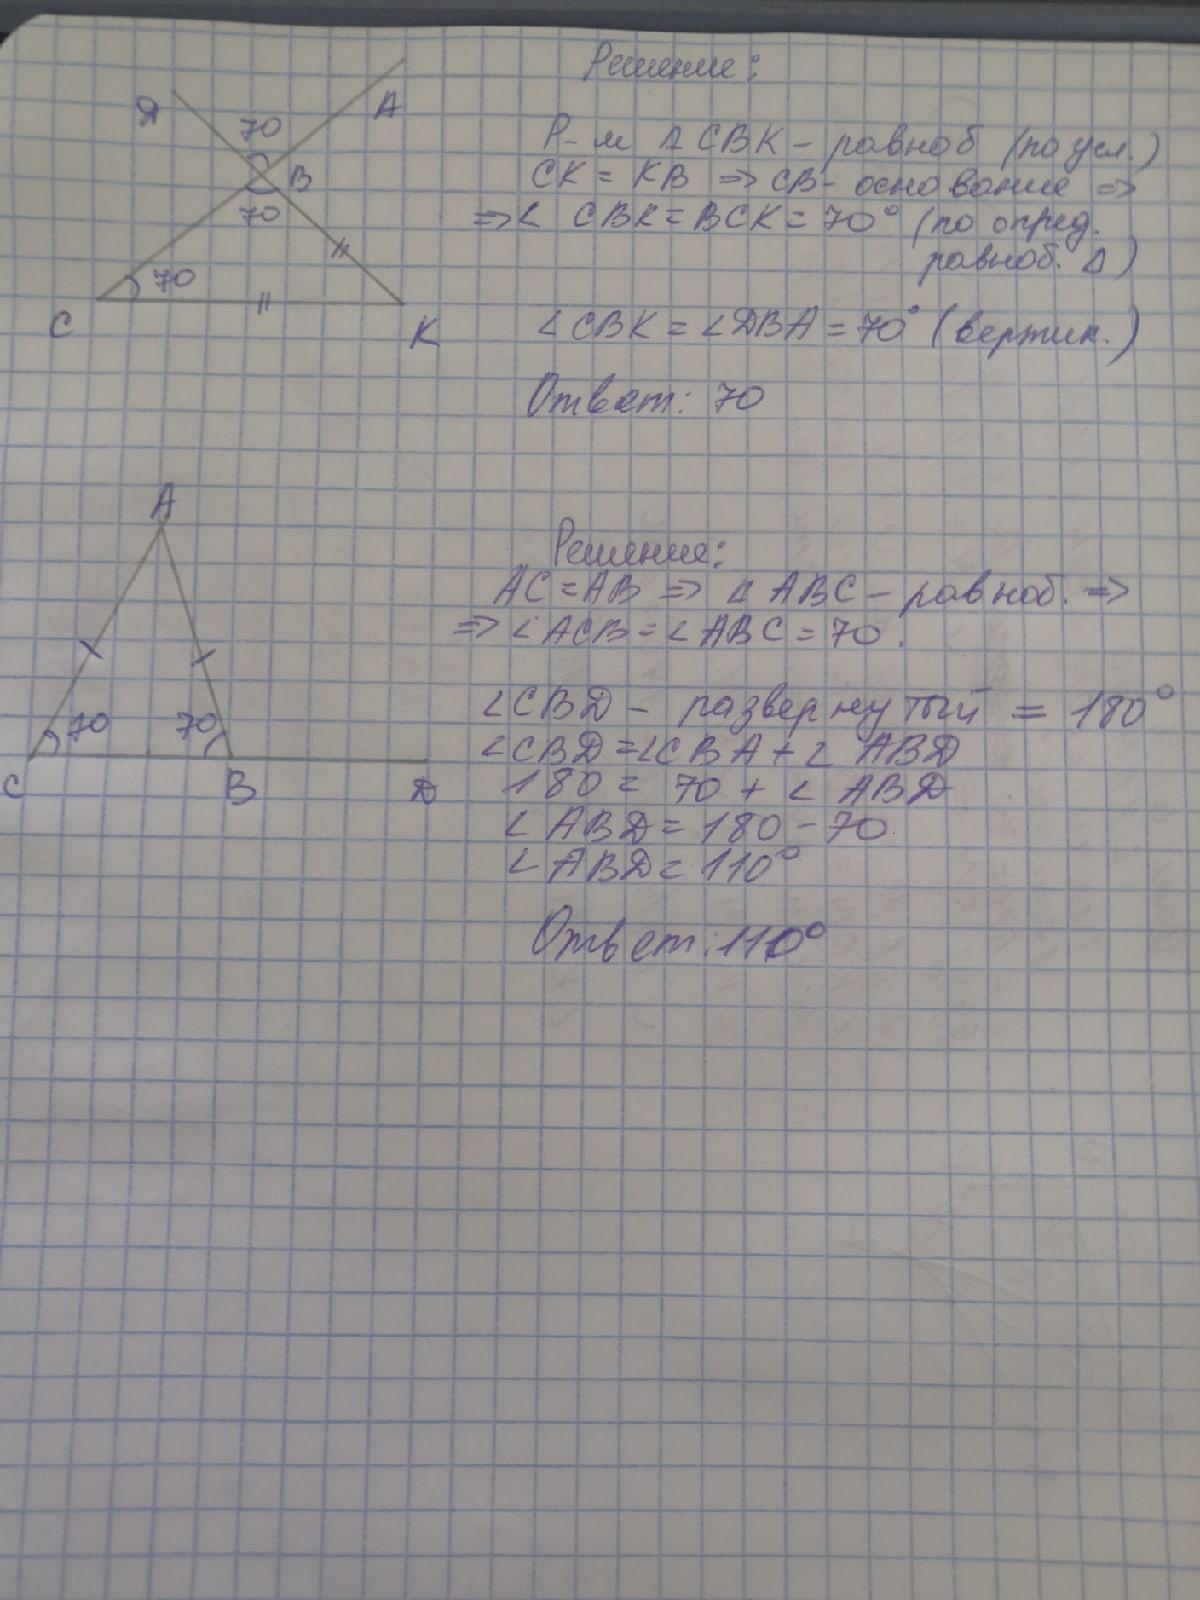 Решение:
Д
70
А
В
70
70
С
К
Р-м △ CBK - равноб (по усл.)
CK = KB => CB - основание =>
=> ∠ CBK = BCK = 70° (по опред.
равноб. △)
∠CBK = ∠DBA = 70° (вертик.)
Ответ: 70
А
70
70
С
В
D
Решение:
AC = AB => △ ABC - равноб. =>
=> ∠ACB = ∠ABC = 70.
∠CBD - развернутый = 180°
∠CBD = ∠CBA + ∠ ABD
180 = 70 + ∠ ABD
∠ ABD = 180 - 70
∠ ABD = 110°
Ответ: 110°